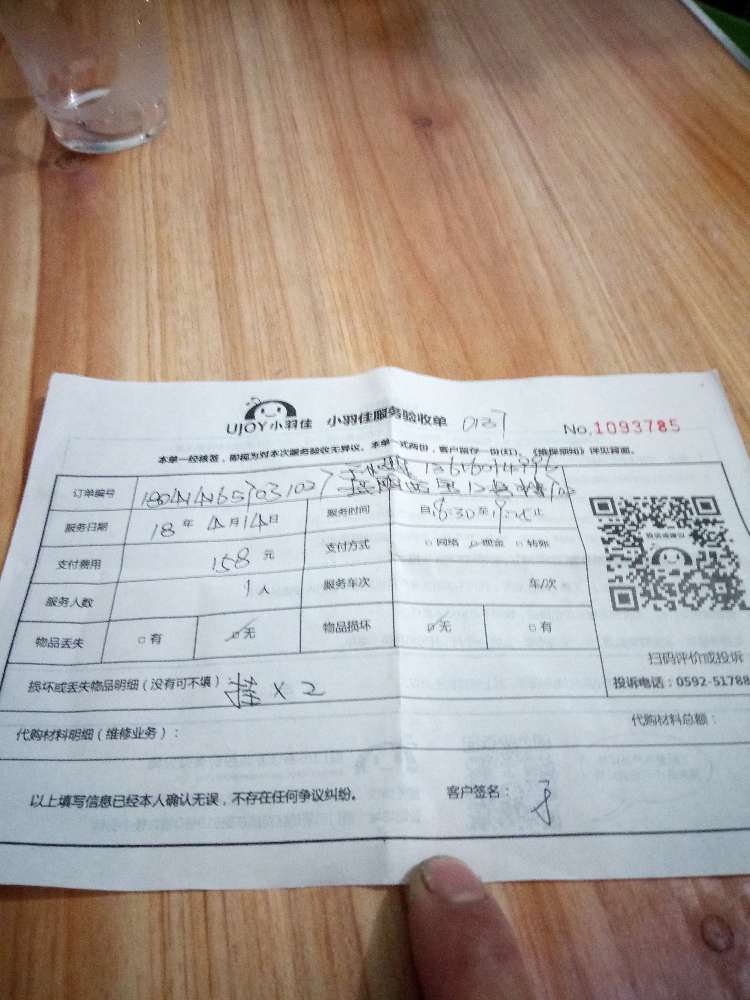 UJOY小羽佳 小羽佳服务验收单 0137 No.1093785
本单一经核签，即视为对本次服务验收无异议。本单一式两份，客户留存一份(红)。《维保须知》详见背面。
订单编号
服务日期 18年4月14日 服务时间 自8:30至 止
支付费用 158元 支付方式 网络 现金 转账
服务人数 1人 服务车次 车/次
物品丢失 有 无 物品损坏 无 有
扫码评价或投诉
损坏或丢失物品明细（没有可不填） 挂×2
投诉电话：0592-51788
代购材料明细（维修业务）： 代购材料总额：
以上填写信息已经本人确认无误，不存在任何争议纠纷。 客户签名：